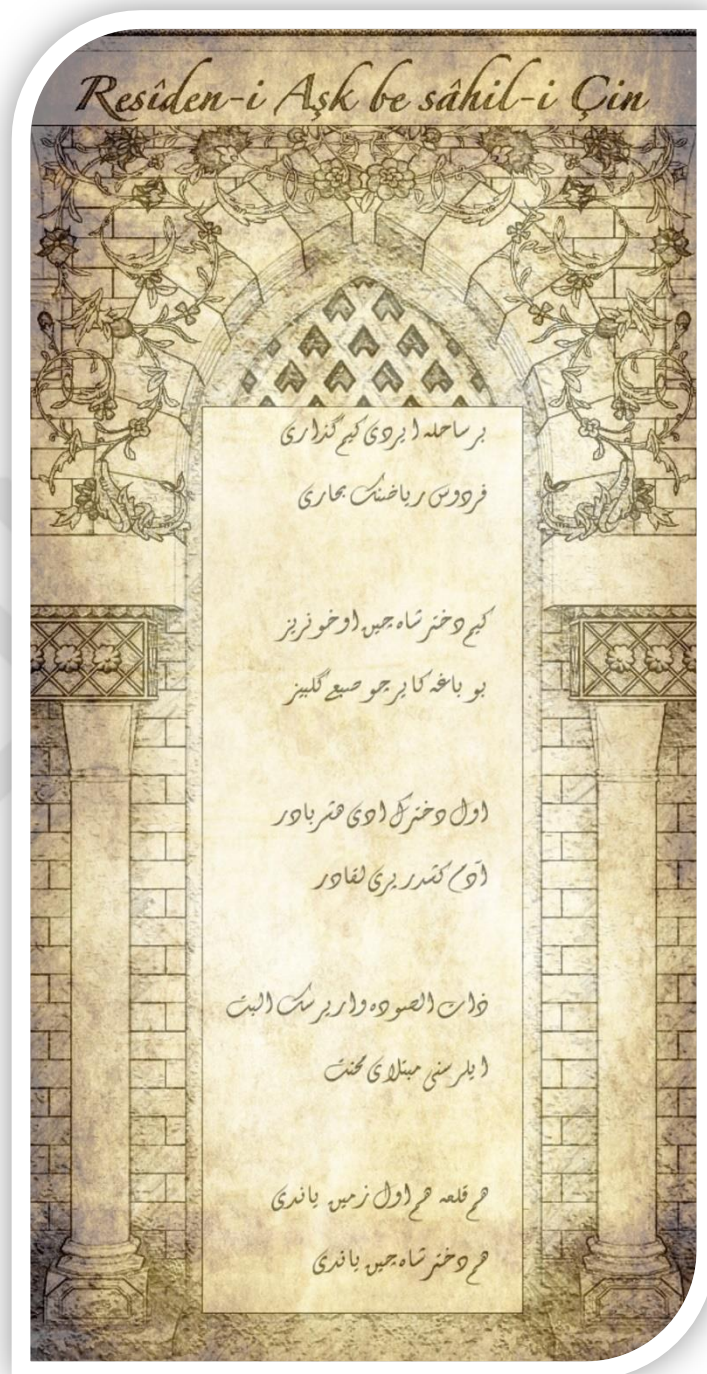 Resîden-i Aşk be sâhil-i Çin
بر ساحله ایردی کیم گذاری
فردوس ریاضنک بهاری
کیم دختر شاه چین او خونریز
بو باغه کلیر چو صبح گلبیز
اول دخترک ادی هشربادر
آدم کشدر پری لقادر
ذات الصوده واریرسک البت
ایلر سنی مبتلای محنت
هم قلعه هم اول زمین یاندی
هم دختر شاه چین یاندی